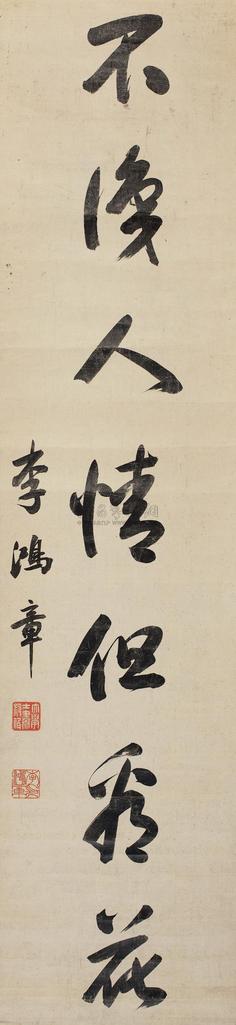 不復人情但看花
李鴻章